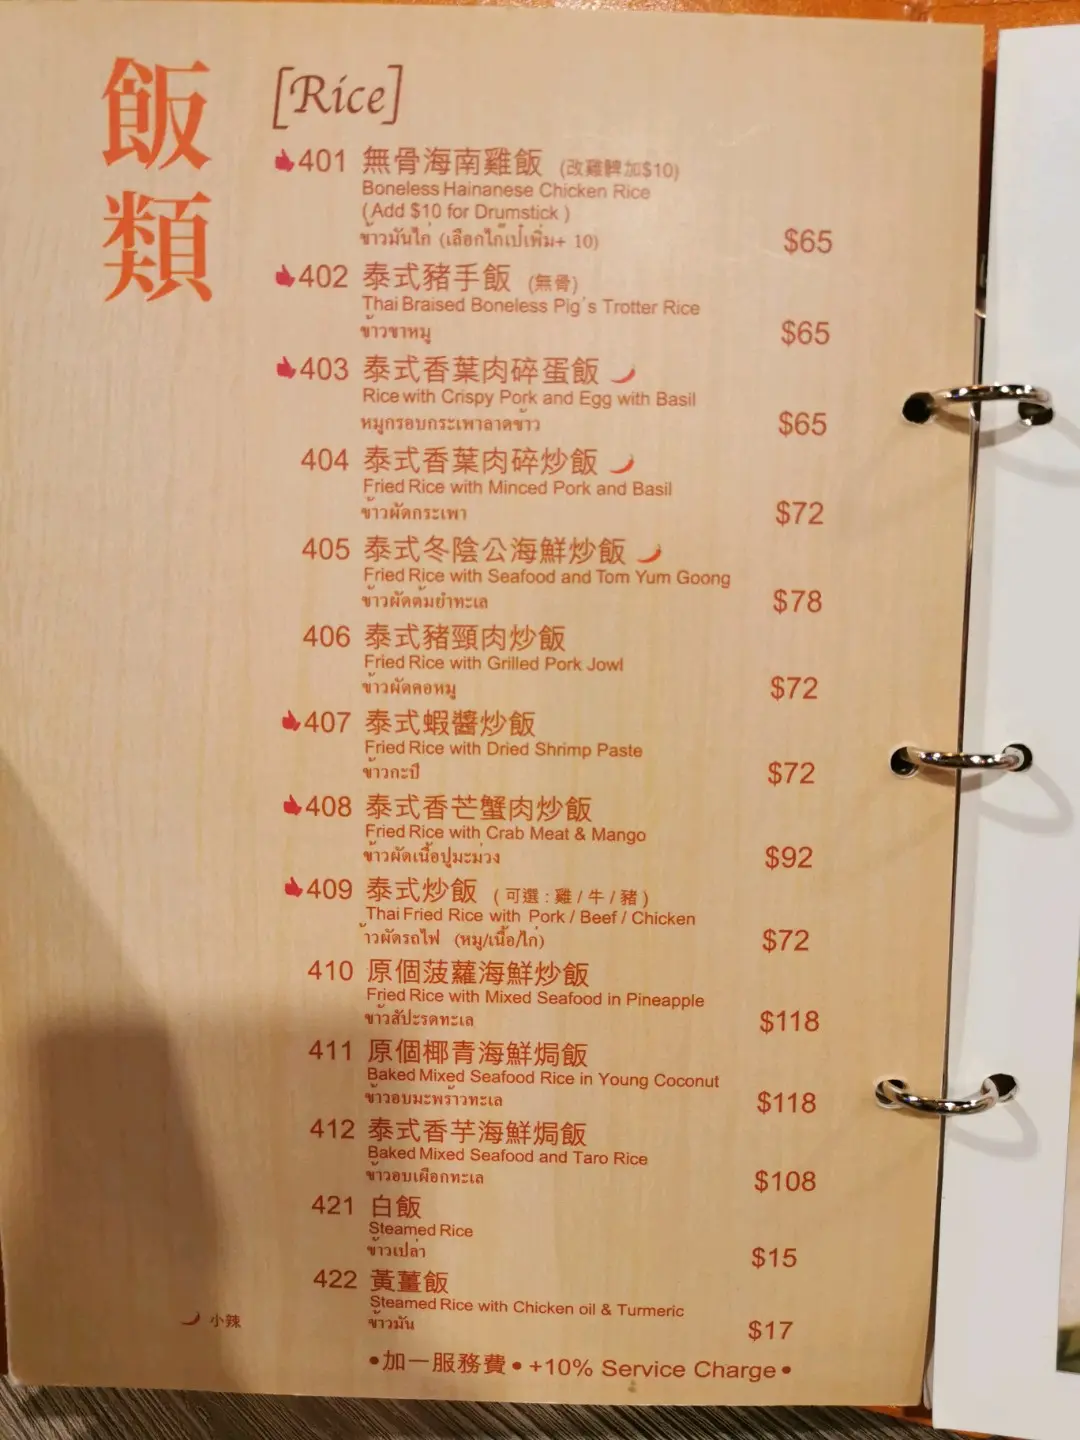 飯類
[Rice]
401 無骨海南雞飯 (改雞髀加$10)
Boneless Hainanese Chicken Rice
(Add $10 for Drumstick)
ข้าวมันไก่ (เลือกไก่เป๋เพิ่ม+ 10) $65
402 泰式豬手飯 (無骨)
Thai Braised Boneless Pig's Trotter Rice
ข้าวขาหมู $65
403 泰式香葉肉碎蛋飯
Rice with Crispy Pork and Egg with Basil
หมูกรอบกระเพาลาดข้าว $65
404 泰式香葉肉碎炒飯
Fried Rice with Minced Pork and Basil
ข้าวผัดกระเพา $72
405 泰式冬陰公海鮮炒飯
Fried Rice with Seafood and Tom Yum Goong
ข้าวผัดต้มยำทะเล $78
406 泰式豬頸肉炒飯
Fried Rice with Grilled Pork Jowl
ข้าวผัดคอหมู $72
407 泰式蝦醬炒飯
Fried Rice with Dried Shrimp Paste
ข้าวกะปี $72
408 泰式香芒蟹肉炒飯
Fried Rice with Crab Meat & Mango
ข้าวผัดเนื้อปูมะม่วง $92
409 泰式炒飯 (可選:雞/牛/豬)
Thai Fried Rice with Pork / Beef / Chicken
้าวผัดรถไฟ (หมู/เนื้อ/ไก่) $72
410 原個菠蘿海鮮炒飯
Fried Rice with Mixed Seafood in Pineapple
ข้าวสัปะรดทะเล $118
411 原個椰青海鮮焗飯
Baked Mixed Seafood Rice in Young Coconut
ข้าวอบมะพร้าวทะเล $118
412 泰式香芋海鮮焗飯
Baked Mixed Seafood and Taro Rice
ข้าวอบเผือกทะเล $108
421 白飯
Steamed Rice
ข้าวเปล่า $15
422 黃薑飯
Steamed Rice with Chicken oil & Turmeric
ข้าวมัน $17
小辣
•加一服務費• +10% Service Charge•